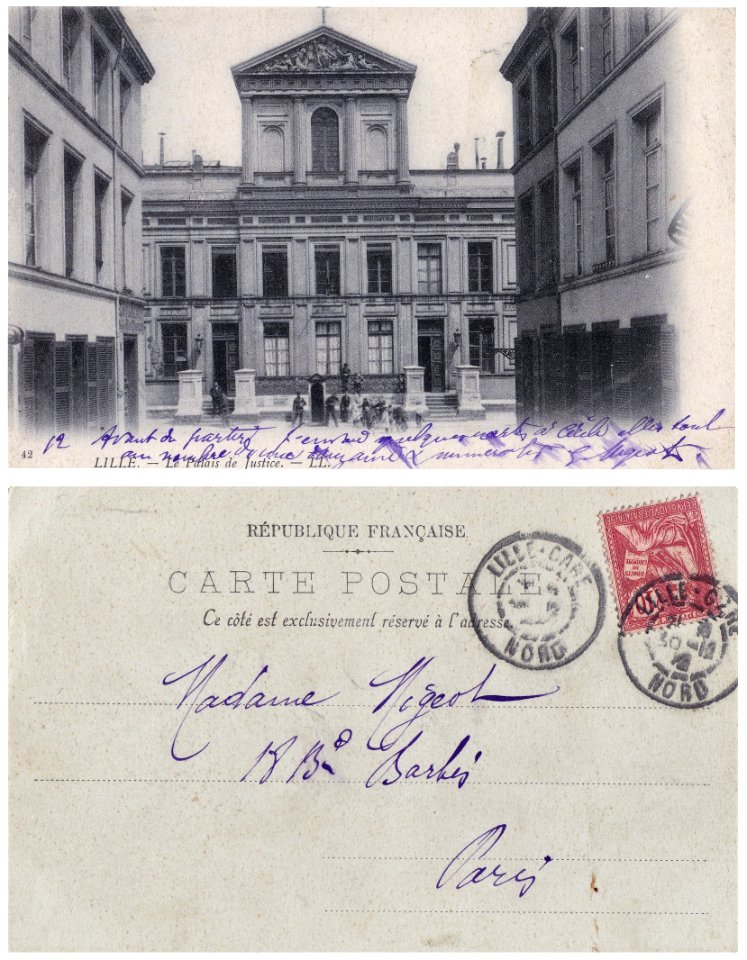 12 Avant de partir j'envoie quelques cartes à Cécile elles sont
au nombre d'une douzaine & numérotées G. Migeot.
42 LILLE. — Le Palais de Justice. — LL.
RÉPUBLIQUE FRANÇAISE
CARTE POSTALE
Ce côté est exclusivement réservé à l'adresse
LILLE-GARE
NORD
LILLE-GARE
NORD
Madame Migeot
18 Bd Barbès
Paris